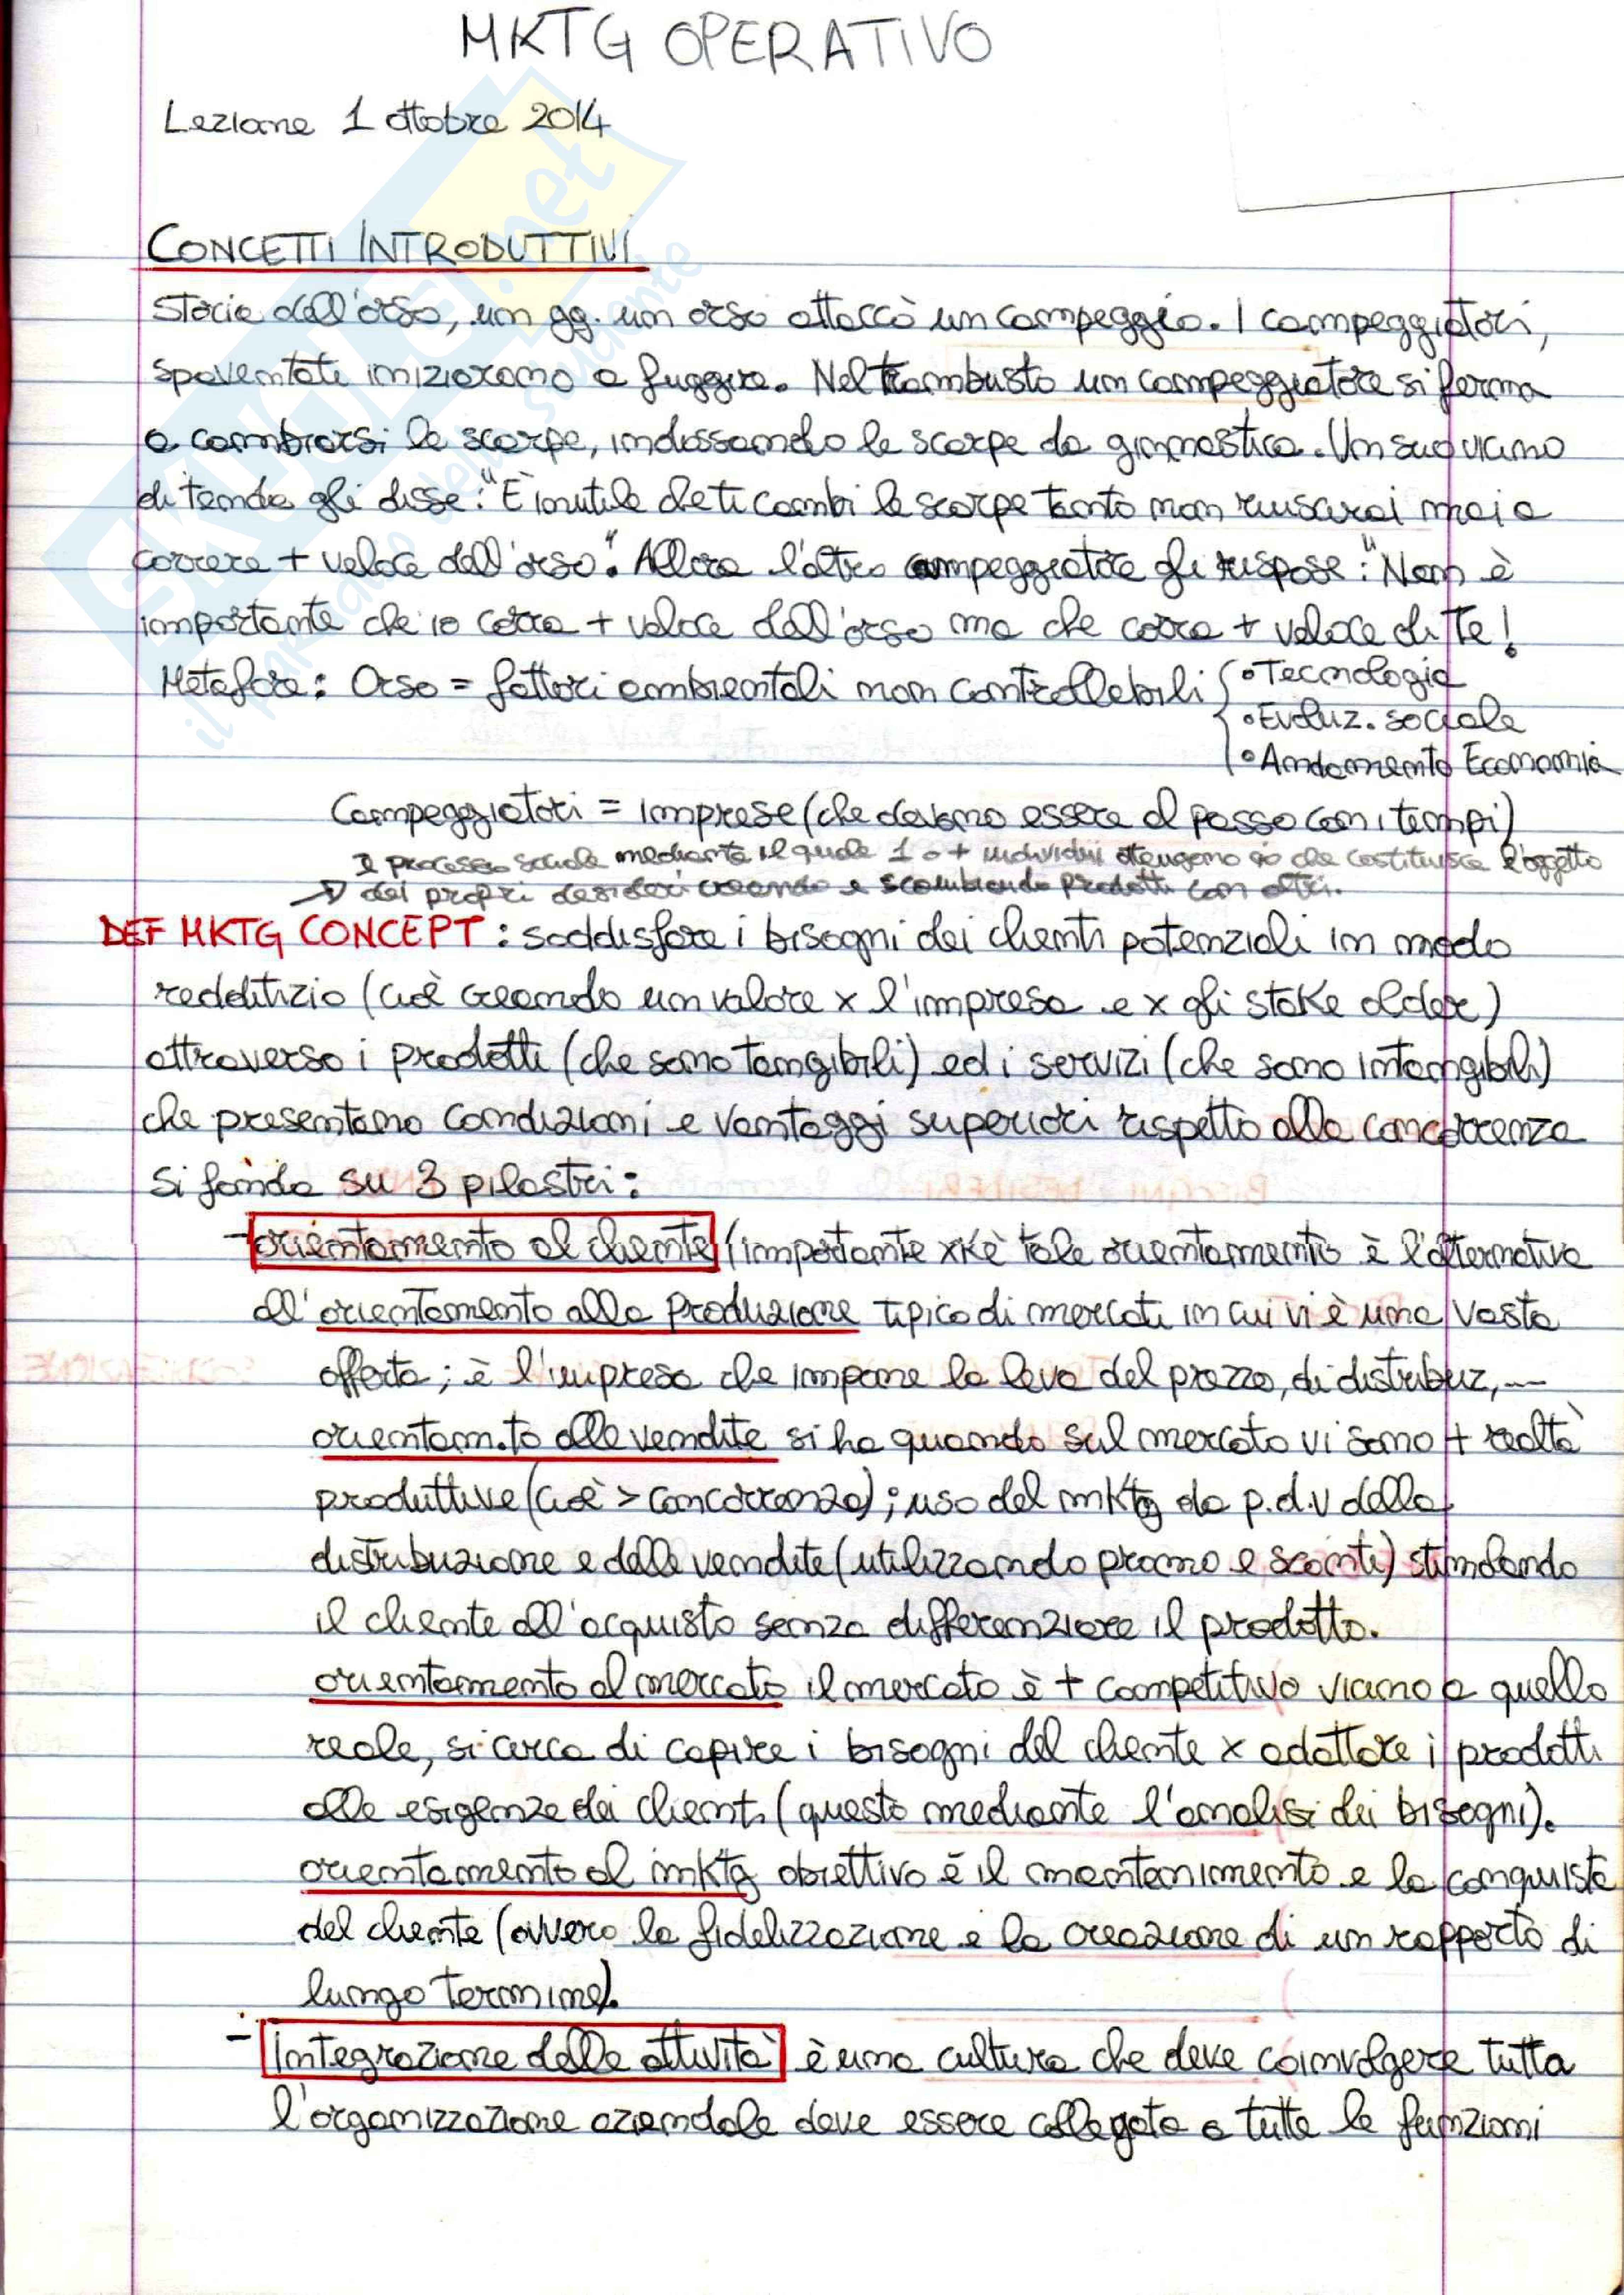 MKTG OPERATIVO
Lezione 1 ottobre 2014
CONCETTI INTRODUTTIVI
Storia dell'orso, un gg. un orso attaccò un campeggio. I campeggiatori,
spaventati iniziarono a fuggire. Nel trambusto un campeggiatore si ferma
a cambiarsi le scarpe, indossando le scarpe da ginnastica. Un suo vicino
di tenda gli disse: "È inutile che ti cambi le scarpe tanto non riuscirai mai a
correre + veloce dell'orso". Allora l'altro campeggiatore gli rispose: "Non è
importante che io corra + veloce dell'orso ma che corra + veloce di te!
Metafora: Orso = fattori ambientali non controllabili { • Tecnologia
• Evoluz. sociale
• Andamento Economia
Campeggiatori = imprese (che devono essere al passo con i tempi)
È processo sociale mediante il quale 1 o + individui ottengono ciò che costituisce l'oggetto
→ dei propri desideri creando e scambiando prodotti con altri.
DEF MKTG CONCEPT: soddisfare i bisogni dei clienti potenziali in modo
redditizio (cioè creando un valore x l'impresa e x gli stake older)
attraverso i prodotti (che sono tangibili) ed i servizi (che sono intangibili)
che presentano condizioni e vantaggi superiori rispetto alla concorrenza
si fonda su 3 pilastri:
- orientamento al cliente (importante xkè tale orientamento è l'alternativa
all'orientamento alla produzione tipico di mercati in cui vi è una vasta
offerta; è l'impresa che impone la leva del prezzo, di distribuz, ...
orientam.to alle vendite si ha quando sul mercato vi sono + realtà
produttive (cioè > concorrenza); uso del mktg da p.d.v della
distribuzione e delle vendite (utilizzando promo e sconti) stimolando
il cliente all'acquisto senza differenziare il prodotto.
orientamento al mercato il mercato è + competitivo vicino a quello
reale, si cerca di capire i bisogni del cliente x adattare i prodotti
alle esigenze dei clienti (questo mediante l'analisi dei bisogni).
orientamento al mktg obiettivo è il mantenimento e la conquista
del cliente (ovvero la fidelizzazione e la creazione di un rapporto di
lungo termine).
- Integrazione delle attività è una cultura che deve coinvolgere tutta
l'organizzazione aziendale deve essere collegata a tutte le funzioni
SKUOLA.net
il paradiso dello studente